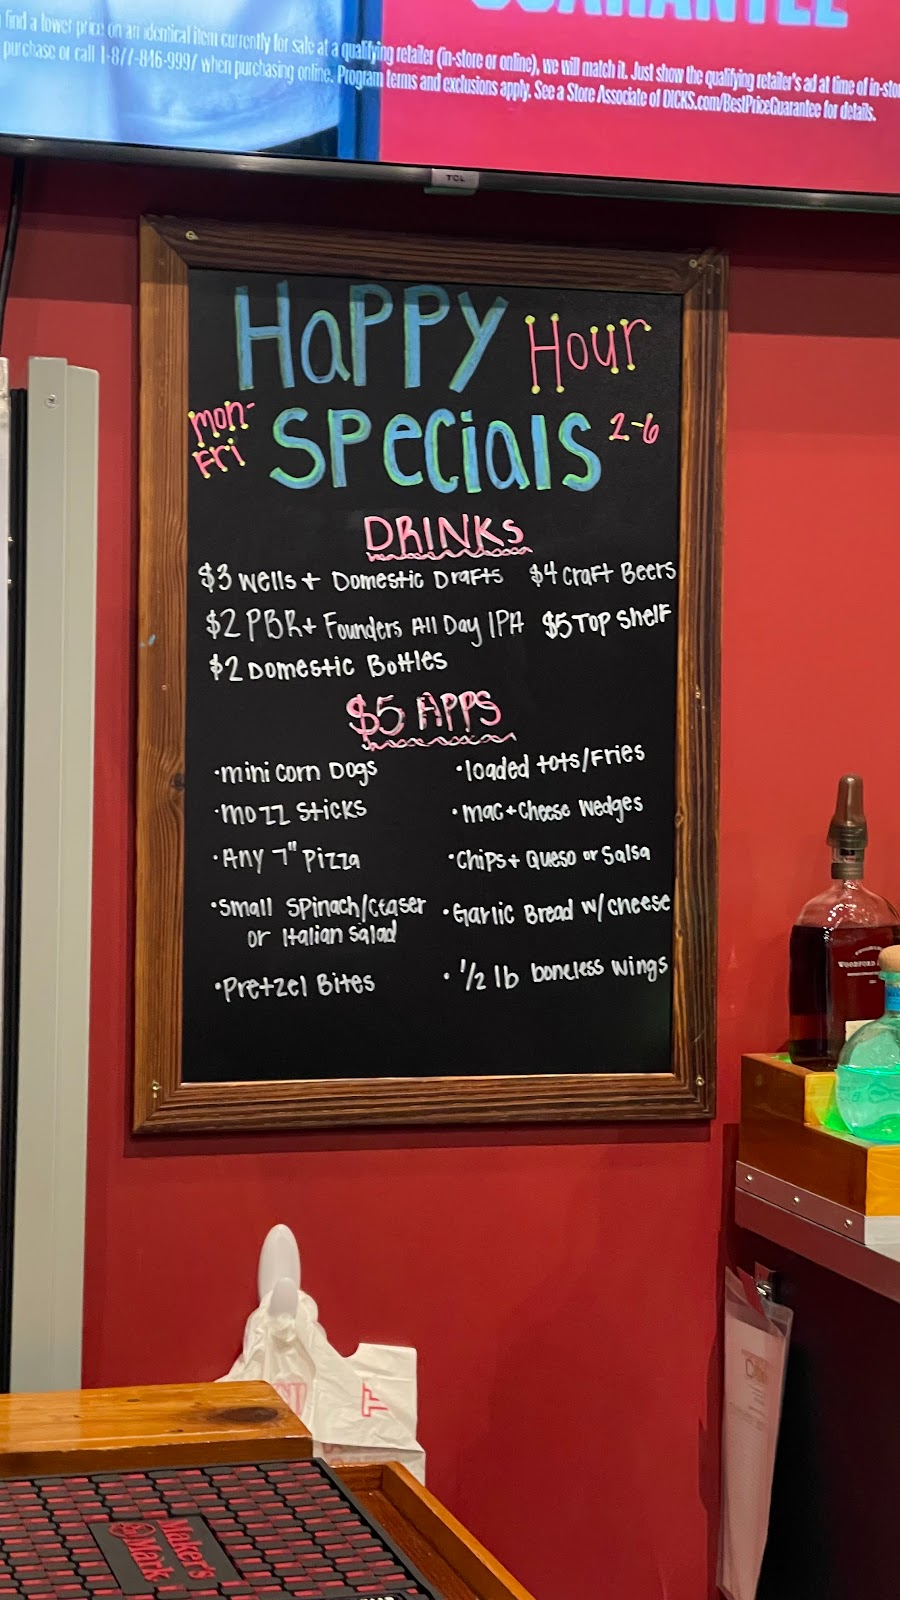 GUARANTEE
find a lower price on an identical item currently for sale at a qualifying retailer (in-store or online), we will match it. Just show the qualifying retailer's ad at time of in-sto
purchase or call 1-877-846-9997 when purchasing online. Program terms and exclusions apply. See a Store Associate of DICKS.com/BestPriceGuarantee for details.
TCL
HaPPY Hour
Mon-
Fri
SPecials
2-6
DRINKS
$3 wells + Domestic Drafts $4 Craft Beers
$2 PBR + Founders All Day IPA $5 Top Shelf
$2 Domestic Bottles
$5 APPS
·mini corn Dogs
·mozz sticks
·Any 7" Pizza
·small spinach/ceaser
or Italian salad
·Pretzel Bites
·loaded tots/fries
·mac+cheese wedges
·Chips + Queso or Salsa
·Garlic Bread w/cheese
·1/2 lb boneless wings
WOODFORD
Maker's
Mark